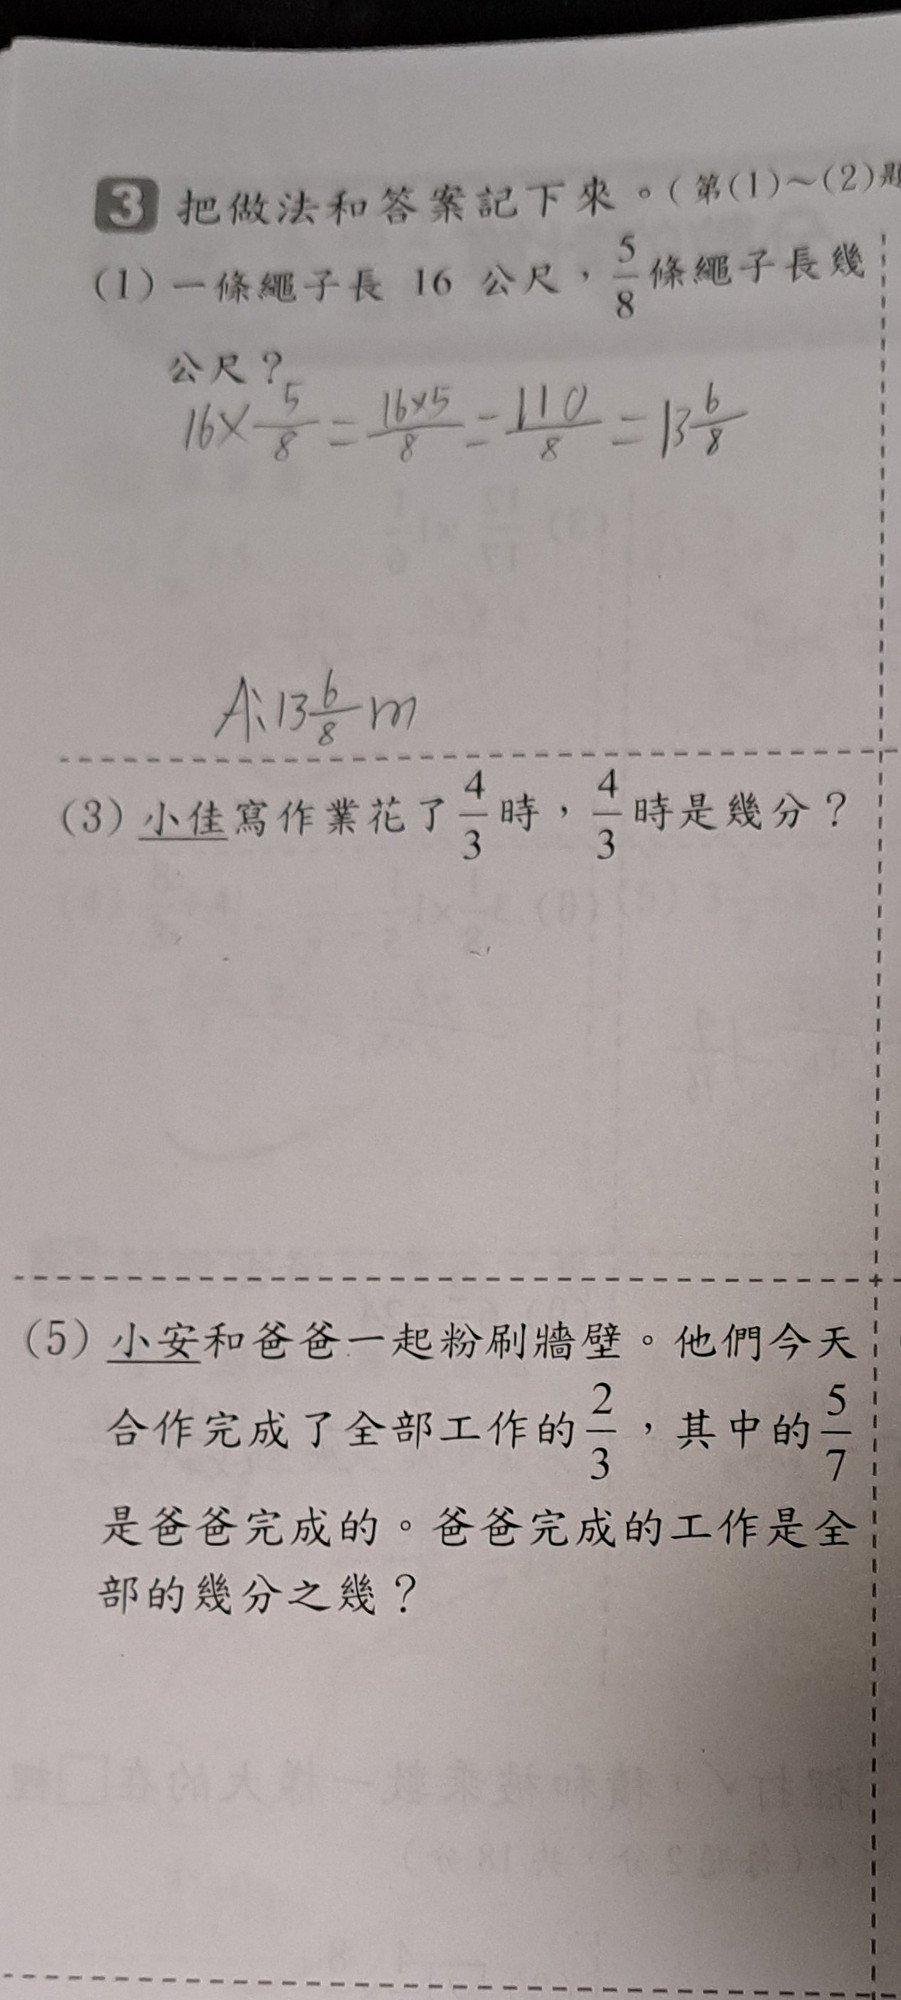 3 把做法和答案記下來。(第(1)～(2)題
(1) 一條繩子長 16 公尺，5/8條繩子長幾
公尺？
16×5/8=16×5/8=110/8=13 6/8
A:13 6/8 m
(3) 小佳寫作業花了4/3時，4/3時是幾分？
(5) 小安和爸爸一起粉刷牆壁。他們今天
合作完成了全部工作的2/3，其中的5/7
是爸爸完成的。爸爸完成的工作是全
部的幾分之幾？